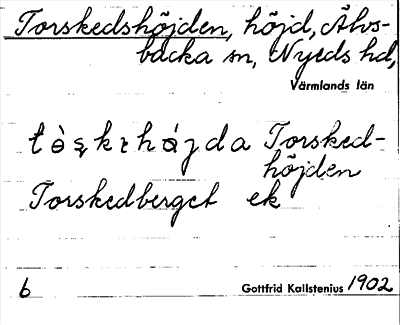 Torskedshöjden, höjd, Älvs-
backa sn, Nyeds hd,
Värmlands län
Torsked-
höjden
Torskedberget ek
6
Gottfrid Kallstenius 1902